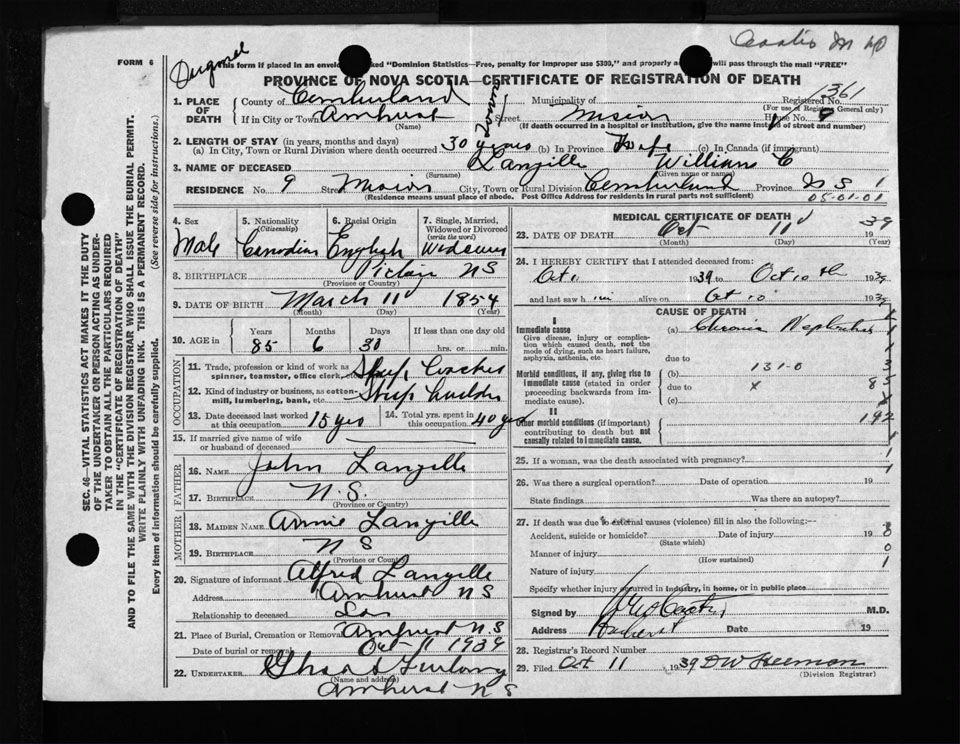 FORM 6
This form if placed in an envelope marked "Dominion Statistics—Free, penalty for improper use $300," and properly will pass through the mail "FREE"
PROVINCE OF NOVA SCOTIA—CERTIFICATE OF REGISTRATION OF DEATH
1361
Registered No.
(For use of Registrar General only)
1. PLACE OF DEATH
County of Cumberland Municipality of
If in City or Town Amherst Street Mision House No. 9
(Name) (If death occurred in a hospital or institution, give the name instead of street and number)
2. LENGTH OF STAY (in years, months and days)
(a) In City, Town or Rural Division where death occurred 30 years (b) In Province Life (c) In Canada (if immigrant)
3. NAME OF DECEASED Langille William C
(Surname) (Given name or names)
RESIDENCE No. 9 Street Mision City, Town or Rural Division Cumberland Province N S 1
(Residence means usual place of abode. Post Office Address for residents in rural parts not sufficient) 05-01-01
4. Sex Male
5. Nationality (Citizenship) Canadian
6. Racial Origin English
7. Single, Married, Widowed or Divorced (write the word) Widower
8. BIRTHPLACE N S
(Province or Country)
9. DATE OF BIRTH March 11 1854
(Month) (Day) (Year)
10. AGE in Years Months Days If less than one day old
85 6 30 hrs. or min.
OCCUPATION
11. Trade, profession or kind of work as spinner, teamster, office clerk, etc. Ship
12. Kind of industry or business, as cotton-mill, lumbering, bank, etc. Ship builder
13. Date deceased last worked at this occupation 15 yrs
14. Total yrs. spent in this occupation 40 yrs
15. If married give name of wife or husband of deceased
FATHER
16. Name John Langille
17. Birthplace N. S.
(Province or Country)
MOTHER
18. Maiden Name Annie Langille
19. Birthplace N S
(Province or Country)
20. Signature of informant Alfred Langille
Address Amherst N S
Relationship to deceased Son
21. Place of Burial, Cremation or Removal Amherst N S
Date of burial or removal Oct 1939
22. UNDERTAKER Furlong
(Name and address)
Amherst N S
MEDICAL CERTIFICATE OF DEATH
23. DATE OF DEATH Oct 11 1939
(Month) (Day) (Year)
24. I HEREBY CERTIFY that I attended deceased from:
Oct 1939 to Oct 10th 1939
and last saw him alive on Oct 10 1939
CAUSE OF DEATH
I
Immediate cause (a) Chronic Nephritis
Give disease, injury or complication which caused death, not the mode of dying, such as heart failure, asphyxia, asthenia, etc.
due to
Morbid conditions, if any, giving rise to immediate cause (stated in order proceeding backwards from immediate cause).
(b) 131-0
due to x
(c)
II
Other morbid conditions (if important) contributing to death but not causally related to immediate cause.
192
25. If a woman, was the death associated with pregnancy?
26. Was there a surgical operation? Date of operation 19
State findings Was there an autopsy?
27. If death was due to external causes (violence) fill in also the following:—
Accident, suicide or homicide? Date of injury 19
(State which)
Manner of injury
(How sustained)
Nature of injury
Specify whether injury occurred in industry, in home, or in public place
Signed by M.D.
Address Amherst Date 19
28. Registrar's Record Number
29. Filed Oct 11 1939
(Division Registrar)
SEC. 46—VITAL STATISTICS ACT MAKES IT THE DUTY
OF THE UNDERTAKER OR PERSON ACTING AS UNDER-
TAKER TO OBTAIN ALL THE PARTICULARS REQUIRED
IN THE "CERTIFICATE OF REGISTRATION OF DEATH"
AND TO FILE THE SAME WITH THE DIVISION REGISTRAR WHO SHALL ISSUE THE BURIAL PERMIT.
WRITE PLAINLY WITH UNFADING INK. THIS IS A PERMANENT RECORD.
Every item of information should be carefully supplied. (See reverse side for instructions).